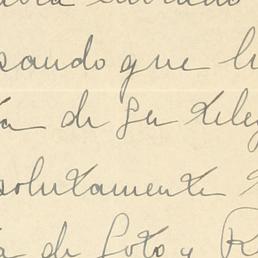 sando que h
a de su teleg
solutamente
a de foto y R